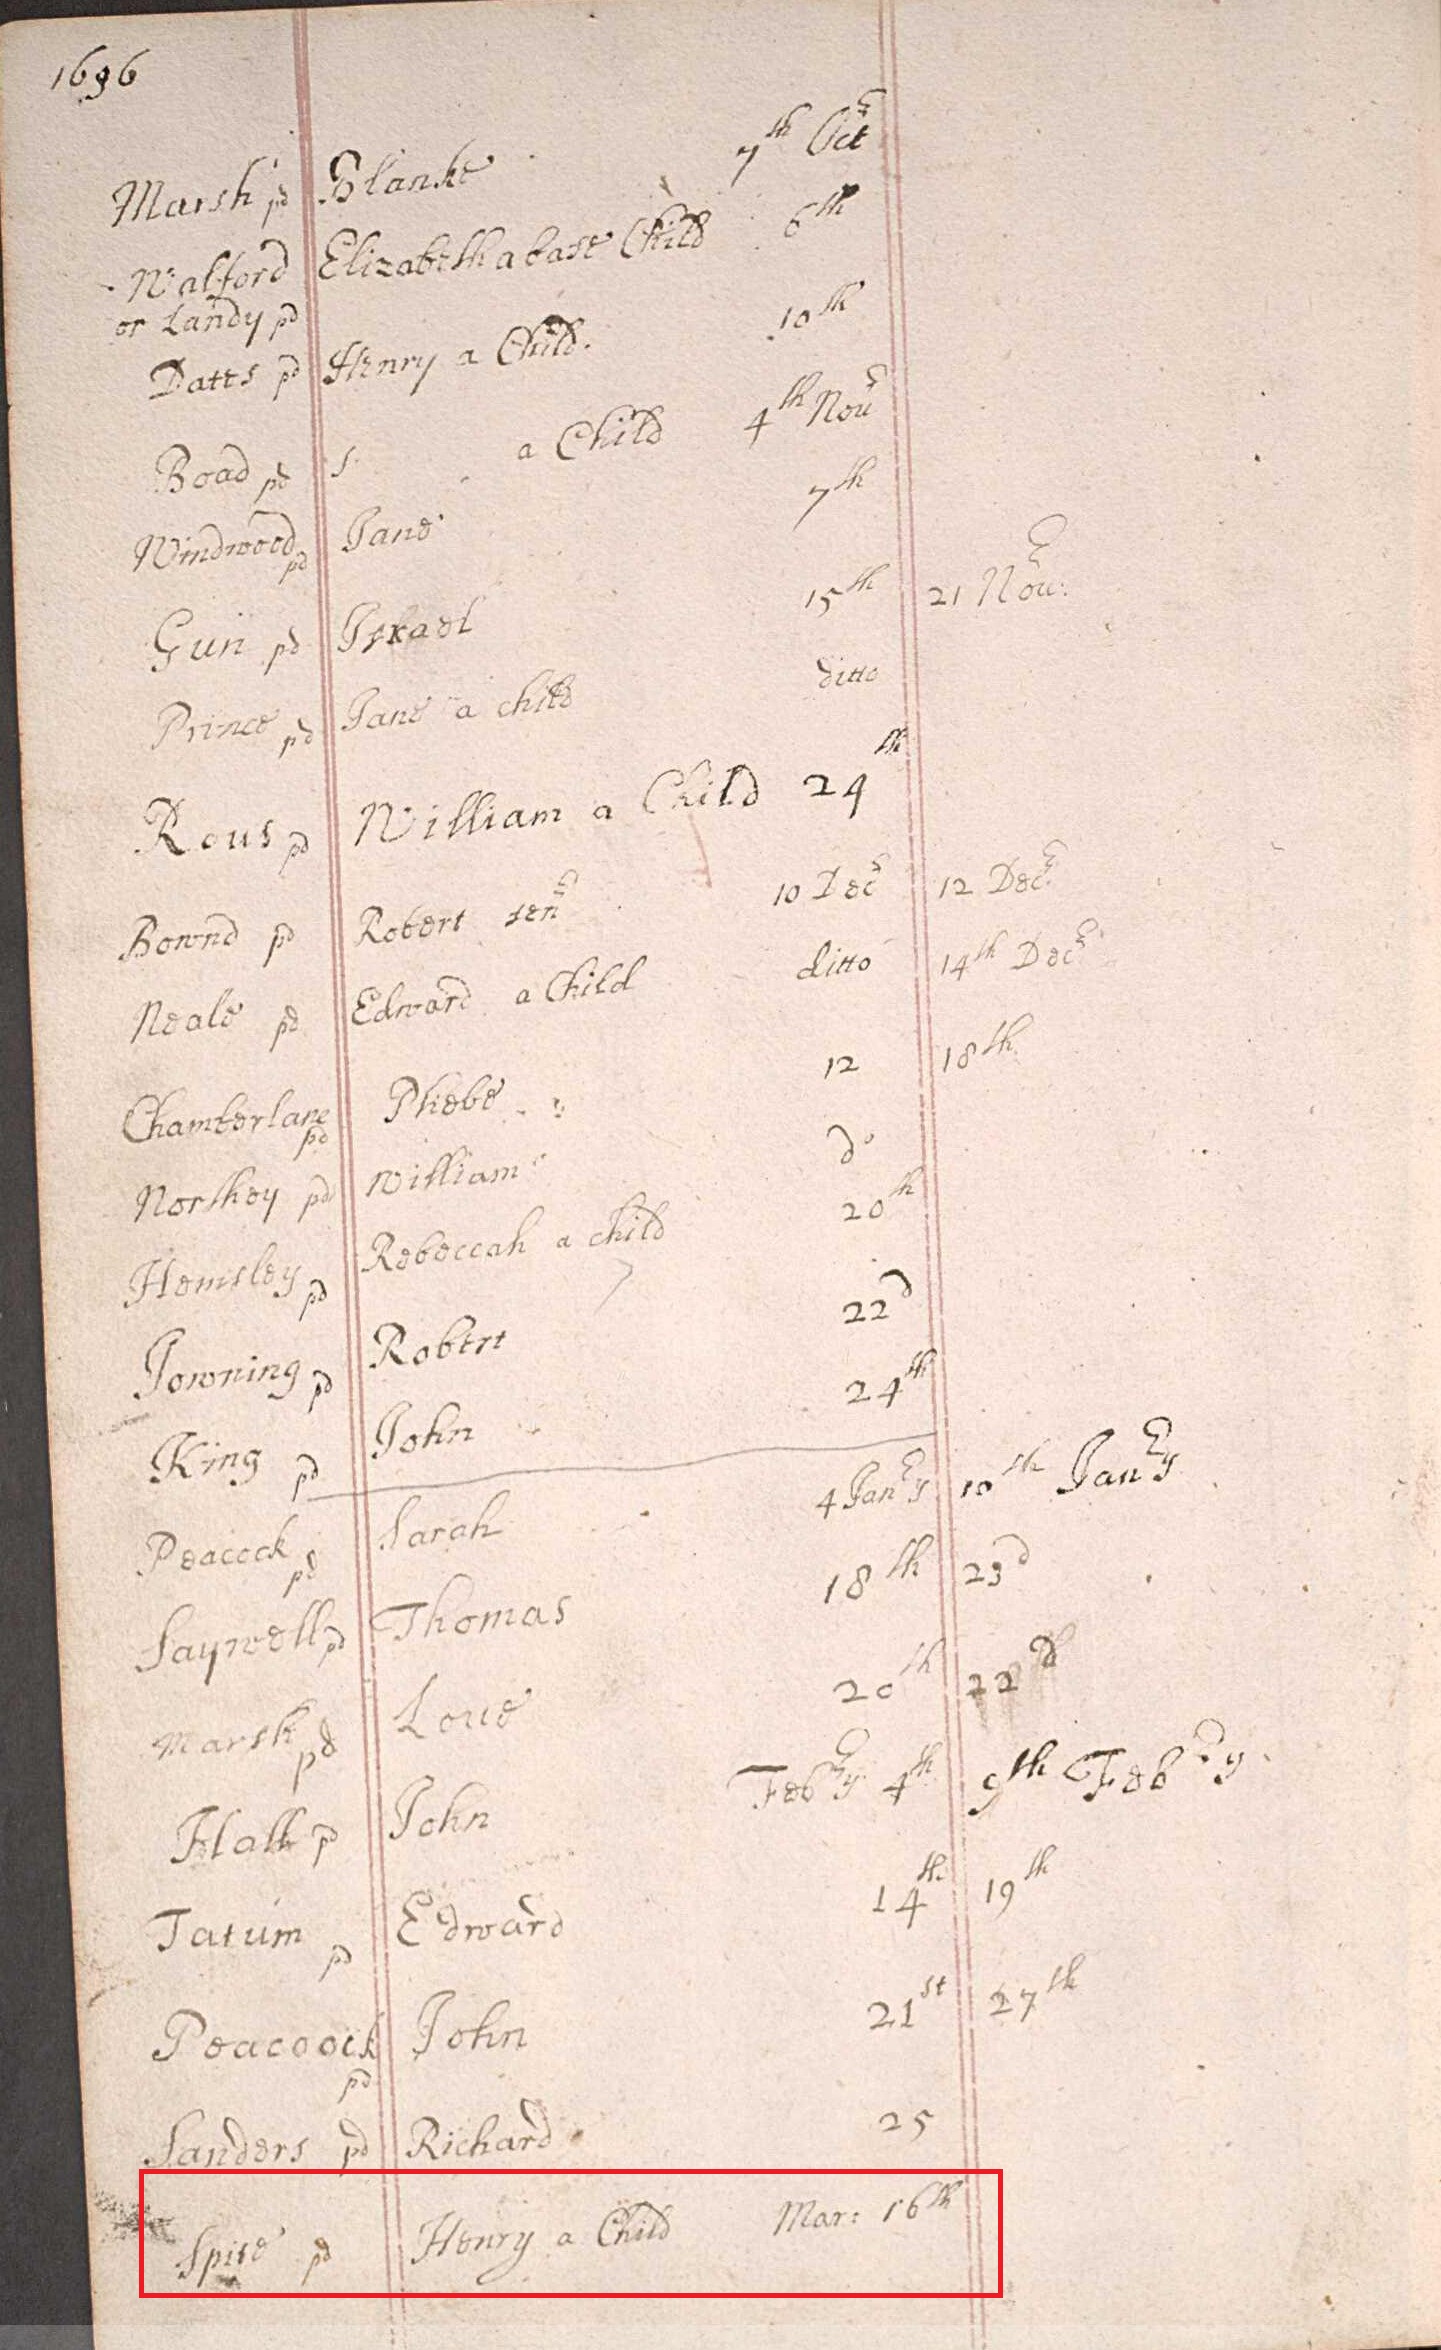 1696
Marsh pd Blanke 7th Octr
Walford Elizabeth a base Child 6th
or Landy pd
Dates pd Henry a Child. 10th
Boad pd s a Child 4th Nour
Windwood pd Jane 7th
Gun pd Israel 15th 21 Nour:
Prince pd Jane a child ditto
Rous pd William a Child 24th
Bownd pd Robert senr 10 Decr 12 Decr
Neale pd Edward a Child ditto 14th Decr
Chamberlane pd Phebe 12 18th
Northey pd William do
Hemsley pd Rebeccah a child 20th
Jowning pd Robert 22d
King pd John 24th
Peacock pd Sarah 4 Janry 10th Janry
Saywell pd Thomas 18th 23d
Marsh pd Loue 20th 22d
Hall pd John Febry 4th 9th Febry.
Tatum pd Edward 14th 19th
Peacoock pd John 21st 27th
Sanders pd Richard 25
Spise pd Henry a Child Mar: 16th